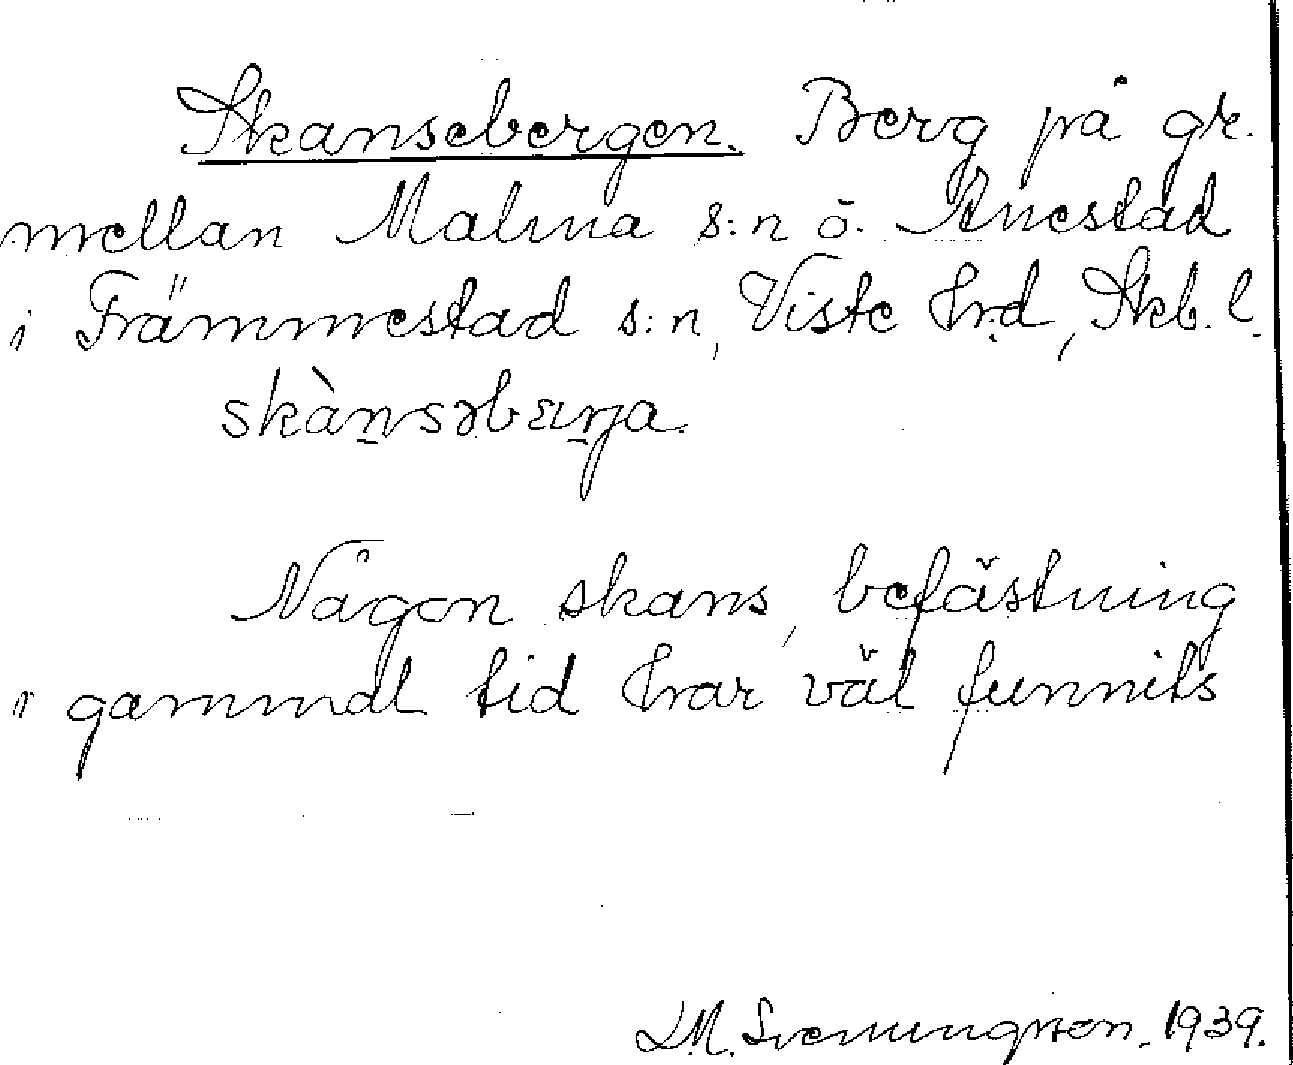 Skansebergen. Berg på gr.
mellan Malma s:n o. Anestad
i Främmestad s:n, Viste hrd, Skb. l.
skàn̠səbærn̠a.
Någon skans, befästning
i gammal tid har väl funnits
L.M. Svenungsson. 1939.